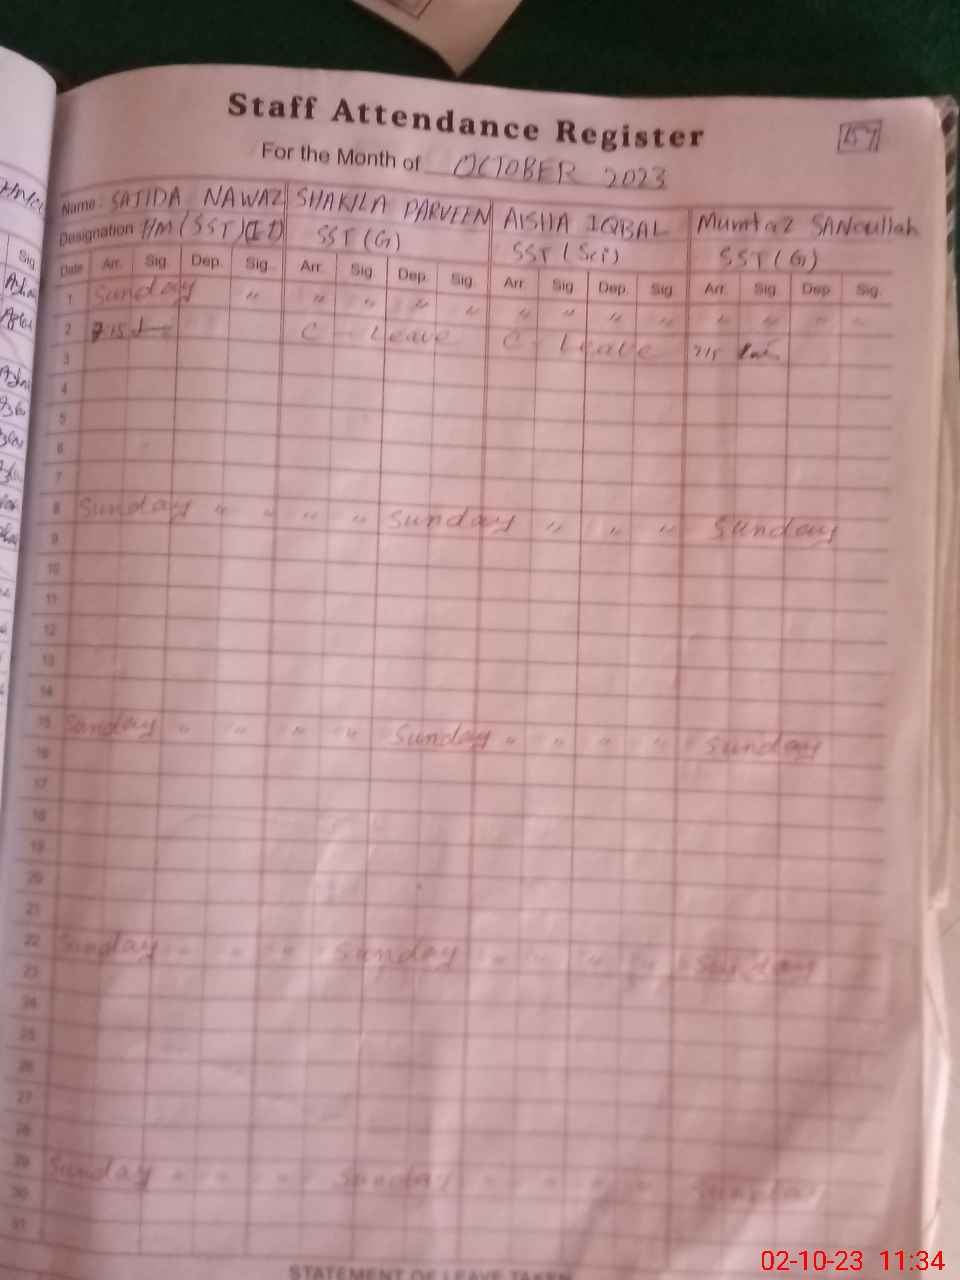 Staff Attendance Register
157
For the Month of OCTOBER 2023
Name SAJIDA NAWAZ SHAKILA PARVEEN AISHA IQBAL Mumtaz SANaullah
Designation H/M (SST) SST (G) SST (Sci) SST (G)
Date Arr. Sig. Dep. Sig. Arr. Sig. Dep. Sig. Arr. Sig. Dep. Sig. Arr. Sig. Dep. Sig.
1 Sunday " " " " " " " " " " " " "
2 7:15 C - Leave C - Leave 7/15
3
4
5
6
7
8 Sunday " " " " Sunday " " " Sunday
9
10
11
12
13
14
15 Sunday " " " " Sunday " " " " Sunday
16
17
18
19
20
21
22 Sunday " " " Sunday " " " " Sunday
23
24
25
26
27
28
29 Sunday " " " " Sunday " " " " " Sunday
30
31
STATEMENT OF LEAVE TAKEN
02-10-23 11:34